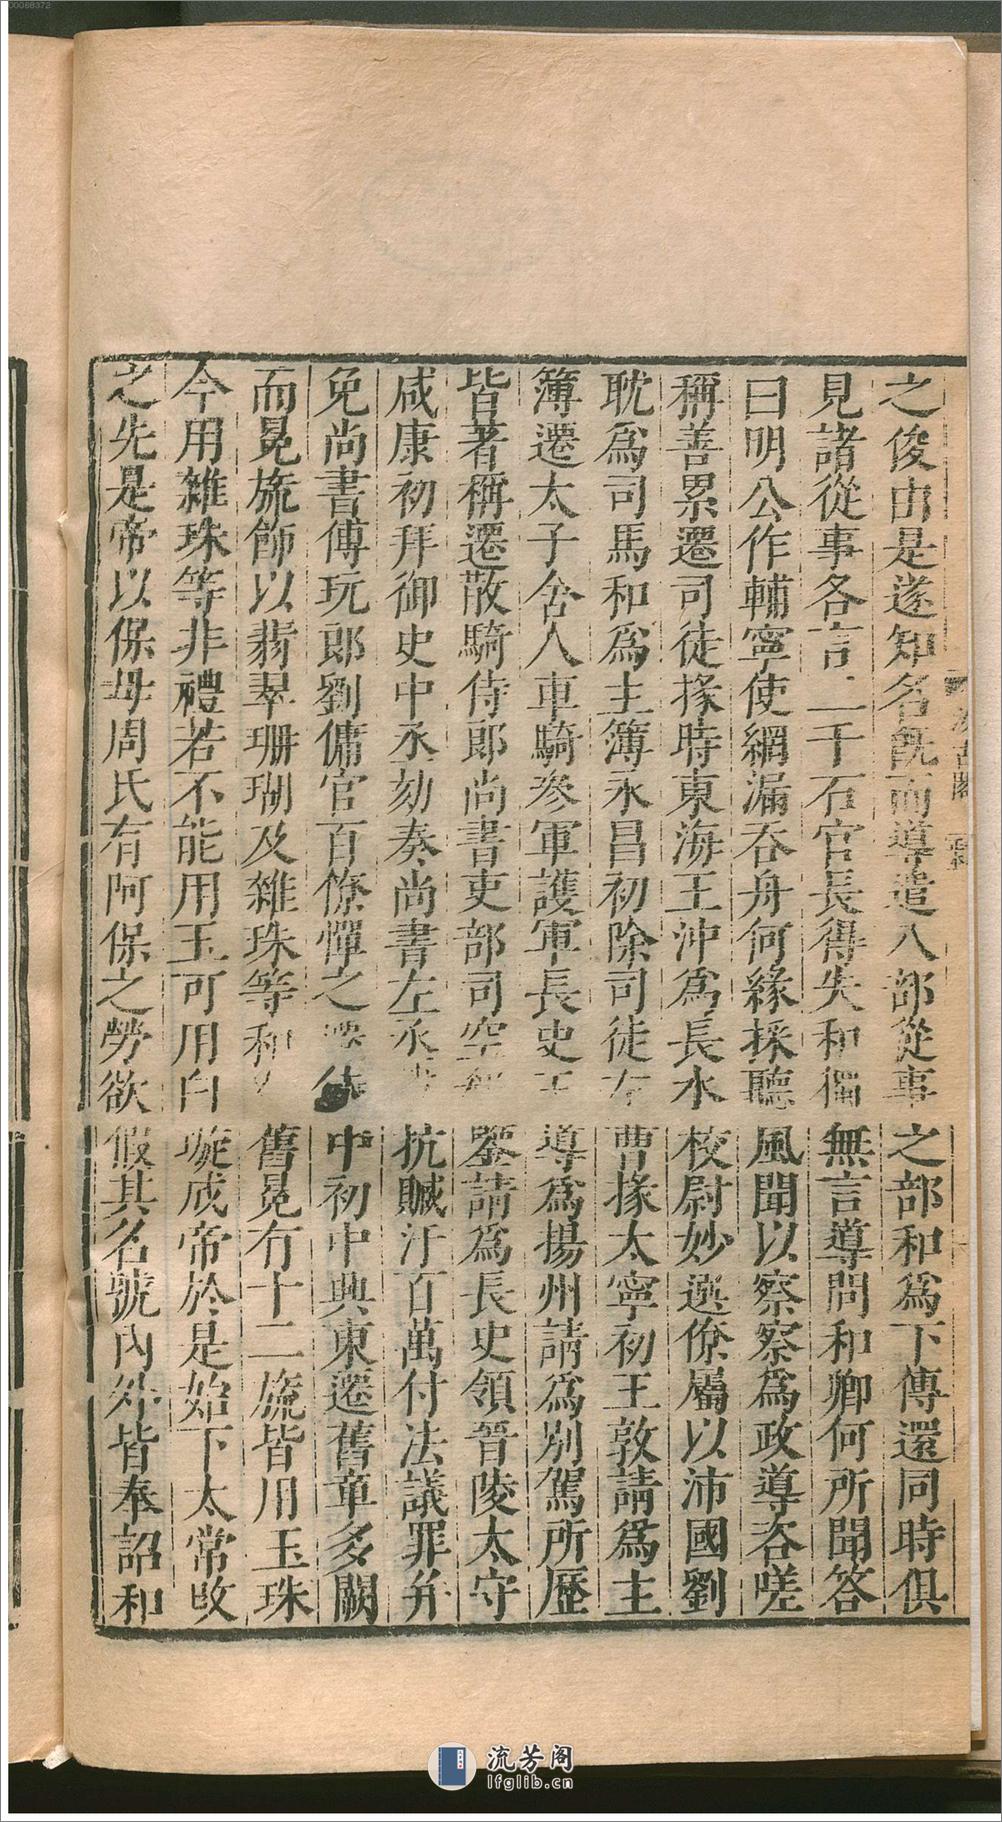 之俊由是遂知名旣而導遣八部從事之部和爲下傳還同時俱
見諸從事各言二千石官長得失和獨無言導問和卿何所聞答
曰明公作輔寧使網漏吞舟何緣採聽風聞以察察爲政導咨嗟
稱善累遷司徒掾時東海王沖爲長水校尉妙選僚屬以沛國劉
耽爲司馬和爲主簿永昌初除司徒左曹掾太寧初王敦請爲主
簿遷太子舍人車騎參軍護軍長史王導爲揚州請爲別駕所歷
皆著稱遷散騎侍郎尚書吏部司空鑒請爲長史領晉陵太守
咸康初拜御史中丞劾奏尚書左丞抗贓汙百萬付法議罪幷
免尚書傅玩郎劉傭官百僚憚之中初中興東遷舊章多闕
而冕旒飾以翡翠珊瑚及雜珠等和舊冕有十二旒皆用玉珠
今用雜珠等非禮若不能用玉可用白璇成帝於是始下太常改
之先是帝以保母周氏有阿保之勞欲假其名號內外皆奉詔和
汲古閣
00068372
流芳阁
lfglib.cn